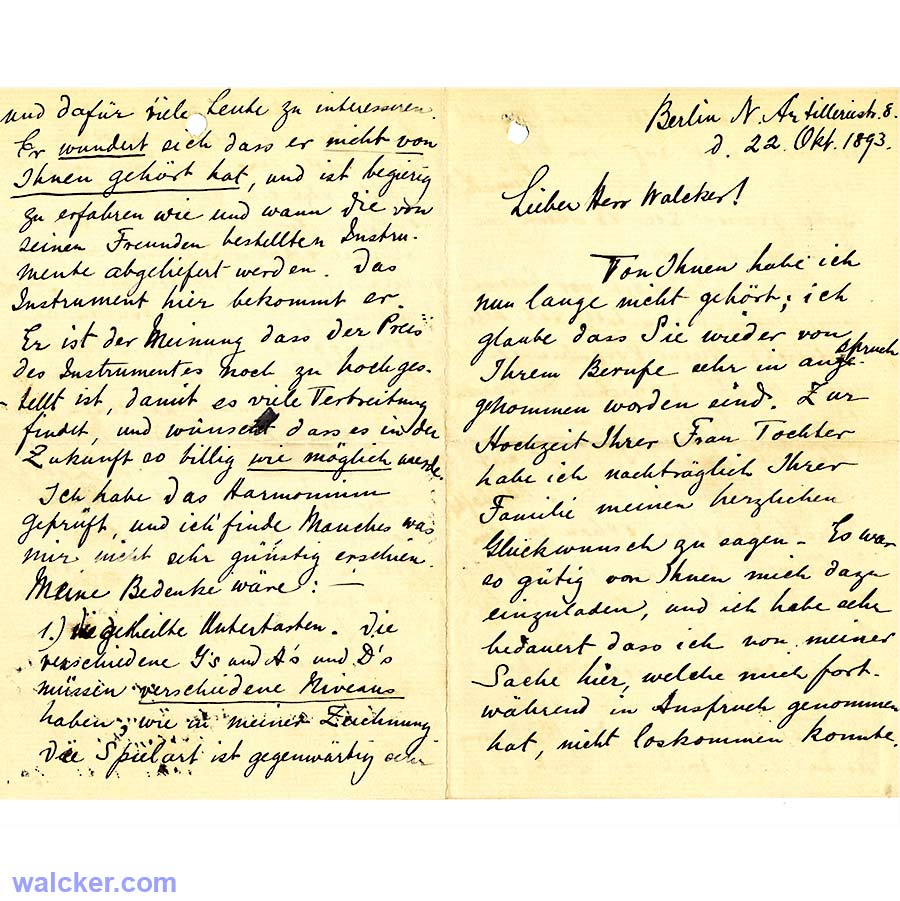 Berlin N. Artilleriestr. 8.
d. 22. Okt. 1893.
Lieber Herr Walcker!
Von Ihnen habe ich
nun lange nicht gehört; ich
glaube dass Sie wieder von
Ihrem Berufe sehr in anspruch
genommen worden sind. Zur
Hochzeit Ihrer Frau Tochter
habe ich nachträglich Ihrer
Familie meinen herzlichen
Glückwunsch zu sagen – Es war
so gütig von Ihnen mich dazu
einzuladen, und ich habe sehr
bedauert dass ich von meiner
Sache hier, welche mich fort-
während in Anspruch genommen
hat, nicht loskommen konnte.
und dafür viele Leute zu interessiren.
Er wundert sich dass er nicht von
Ihnen gehört hat, und ist begierig
zu erfahren wie und wann die von
seinen Freunden bestellten Instru-
mente abgeliefert werden. Das
Instrument hier bekommt er.
Er ist der Meinung dass der Preis
des Instrumentes noch zu hochges-
tellt ist, damit es viele Verbreitung
findet, und wünscht dass es in der
Zukunft so billig wie möglich werde.
Ich habe das Harmonium
geprüft, und ich finde Manches was
mir nicht sehr günstig erschien.
Meine Bedenke wäre: —
1.) die getheilte Untertasten. Die
verschiedene G's und A's und D's
müssen verschiedene Niveaus
haben, wie in meiner Zeichnung
Die Spielart ist gegenwärtig sehr
walcker.com